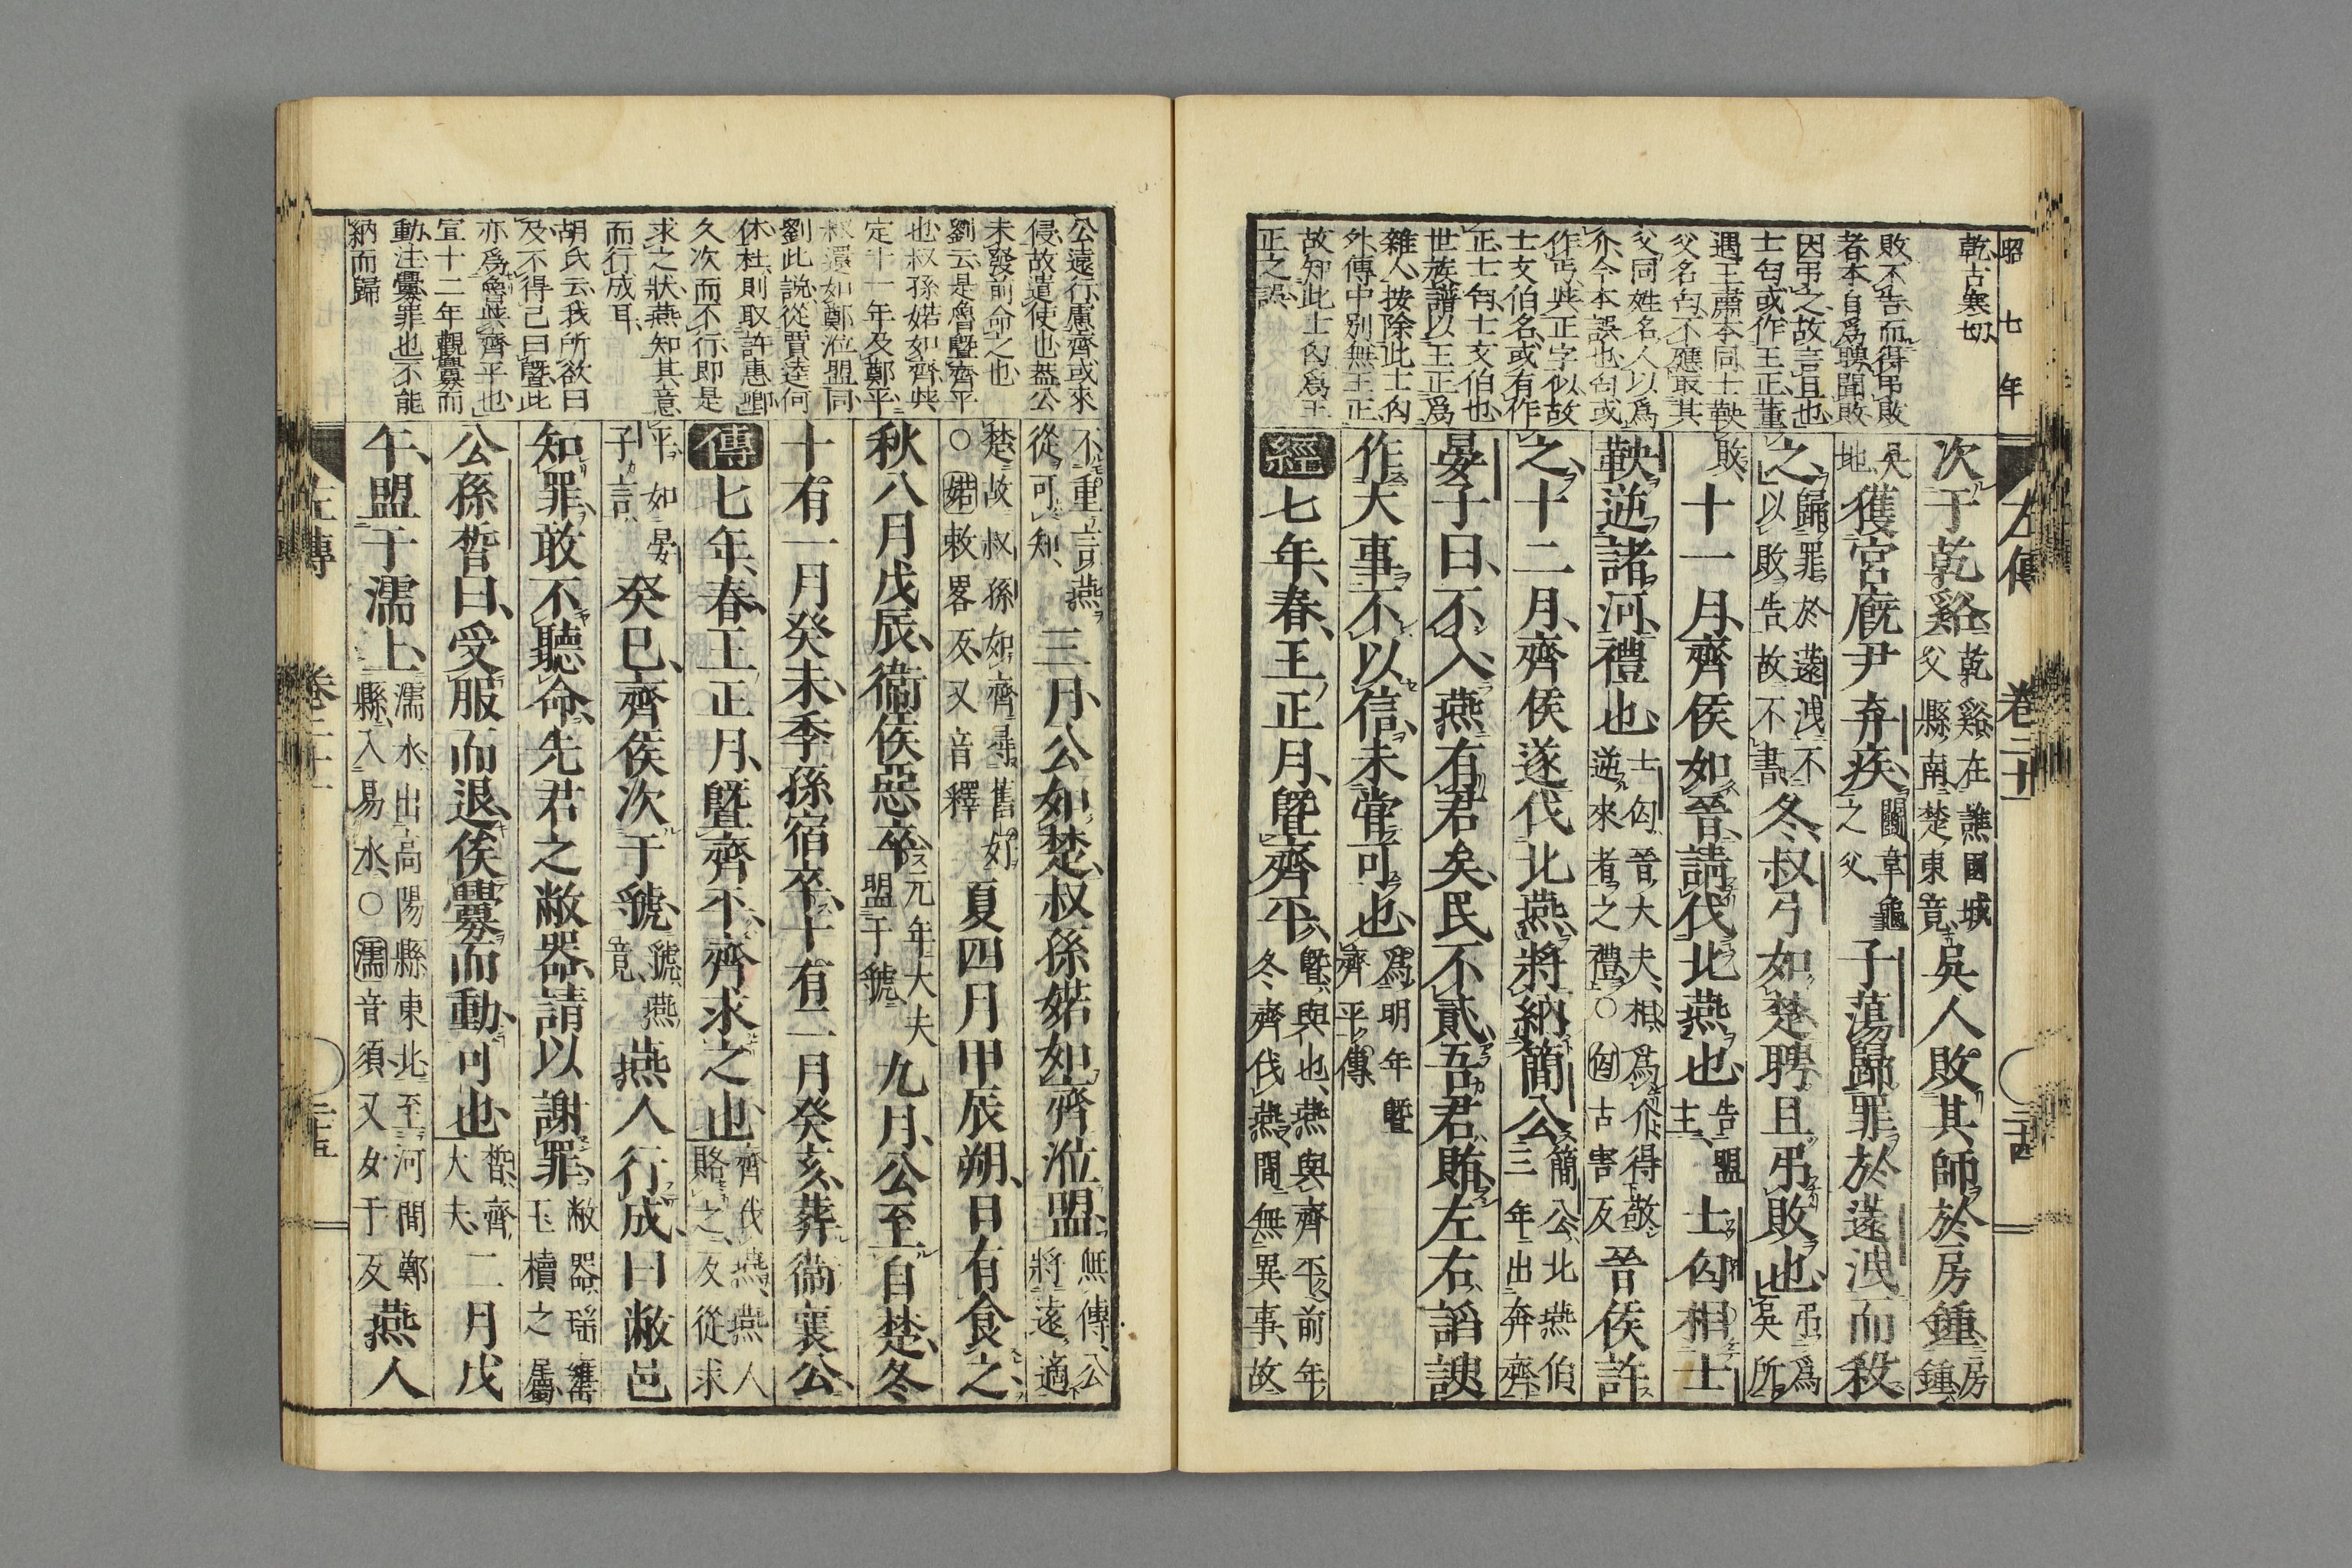 昭七年
左傳 卷二十一 二十四
乾古寒切
敗不告而得弔敗
者本自爲聘聞敗
因弔之故言且也
士匄或作王正董
遇王肅本同士鞅
父名匄不應取其
父同姓名人以爲
介今本誤也匄或
作丐與正字似故
士文伯名或有作
正士匄士文伯也
世族譜以王正爲
雜人按除此士匄
外傳中別無王正
故知此士匄爲王
正之誤
次于乾谿乾谿在譙國城父縣南楚東竟吳人敗其師於房鍾房鍾
吳地獲宮廐尹弃疾鬬韋龜之父子蕩歸罪於薳洩而殺
之歸罪於薳洩不以敗告故不書冬叔弓如楚聘且弔敗也弔爲吳所
敗十一月齊侯如晉請伐北燕也告盟主士匄相士
鞅逆諸河禮也士匄晉大夫相爲介得敬逆來者之禮○匄古害反晉侯許
之十二月齊侯遂伐北燕將納簡公簡公北燕伯三年出奔齊
晏子曰不入燕有君矣民不貳吾君賄左右諂諛
作大事不以信未嘗可也爲明年曁齊平傳
經七年春王正月曁齊平曁與也燕與齊平前年冬齊伐燕間無異事故
公遠行慮齊或來
侵故遣使也蓋公
未發前命之也
劉云是魯曁齊平
也叔孫婼如齊與
定十一年及鄭平
叔還如鄭涖盟同
劉此說從賈逵何
休杜則取許惠卿
久次而不行即是
求之狀燕知其意
而行成耳
胡氏云我所欲曰
及不得已曰曁此
亦爲魯與齊平也
宣十二年觀釁而
動注釁罪也不能
納而歸
不重言燕從可知三月公如楚叔孫婼如齊涖盟無傳公將遠適
楚故叔孫如齊尋舊好○婼敕畧反又音釋夏四月甲辰朔日有食之
秋八月戊辰衞侯惡卒元年大夫盟于虢九月公至自楚冬
十有一月癸未季孫宿卒十有二月癸亥葬衞襄公
傳七年春王正月曁齊平齊求之也齊伐燕燕人賂之反從求
平如晏子言癸巳齊侯次于虢虢燕竟燕人行成曰敝邑
知罪敢不聽命先君之敝器請以謝罪敝器瑤罋玉櫝之屬
公孫晳曰受服而退俟釁而動可也晳齊大夫二月戊
午盟于濡上濡水出高陽縣東北至河間鄚縣入易水○濡音須又女于反燕人
左傳 卷二十一 二十五